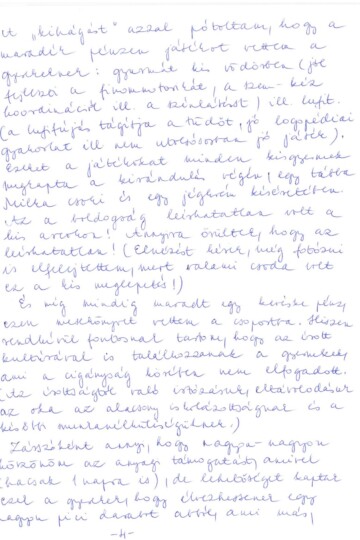 A „kihágást" azzal pótoltam, hogy a
maradék pénzen játékot vettem a
gyerekeknek: gyurmát kis vödörben (jót
fejleszti a finommotorikát, a szem-kéz
koordinációt ill. a színlátást) ill. lufit.
(a lufifújás tágítja a tüdőt, jó logopédiai
gyakorlat ill. nem utolsósorban jó játék).
Ezeket a játékokat minden kisgyermek
megkapta a kirándulás végén, egy tábla
Milka csoki és egy jégkrém kíséretében.
Az a boldogság leírhatatlan volt a
kis arcokon! Annyira örültek, hogy az
leírhatatlan! (Elnézést kérek, még fotózni
is elfelejtettem, mert valami csoda volt
ez a kis meglepetés!)
És még mindig maradt egy kevéske pénz,
ezen mesekönyvet vettem a csoportba. Hiszen
rendkívül fontosnak tartom, hogy az írott
kultúrával is találkozzanak a gyermekek,
ami a cigányság körében nem elfogadott.
(Az írottságtól való irtózásuk, eltávolodásuk
az oka az alacsony iskolázottságnak és a
későbbi munkanélküliségüknek.)
Zárszóként annyi, hogy nagyon-nagyon
köszönöm az anyagi támogatást, amivel
(ha csak 1 napra is), de lehetőséget kaptak
ezek a gyerekek, hogy élvezhessenek egy
nagyon pici darabot abból, ami más,
-4-